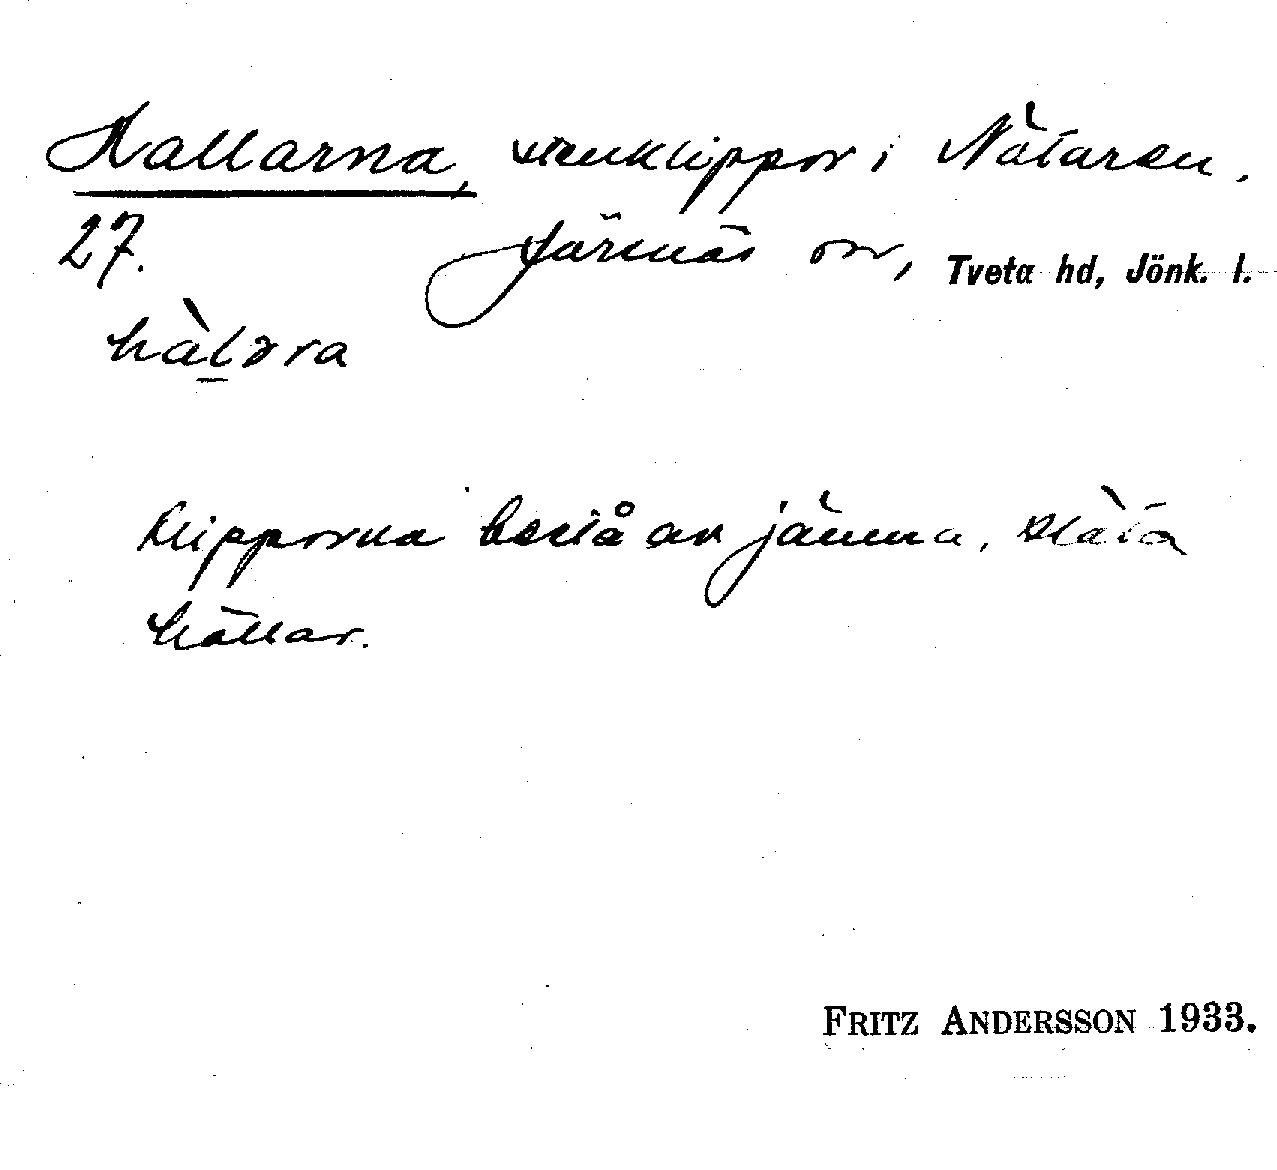 Hallarna, stenklippor i Nätaren.
27. Järsnäs sn, Tveta hd, Jönk. l.
hàlara
Klipporna bestå av jämna, släta
hällar.
FRITZ ANDERSSON 1933.